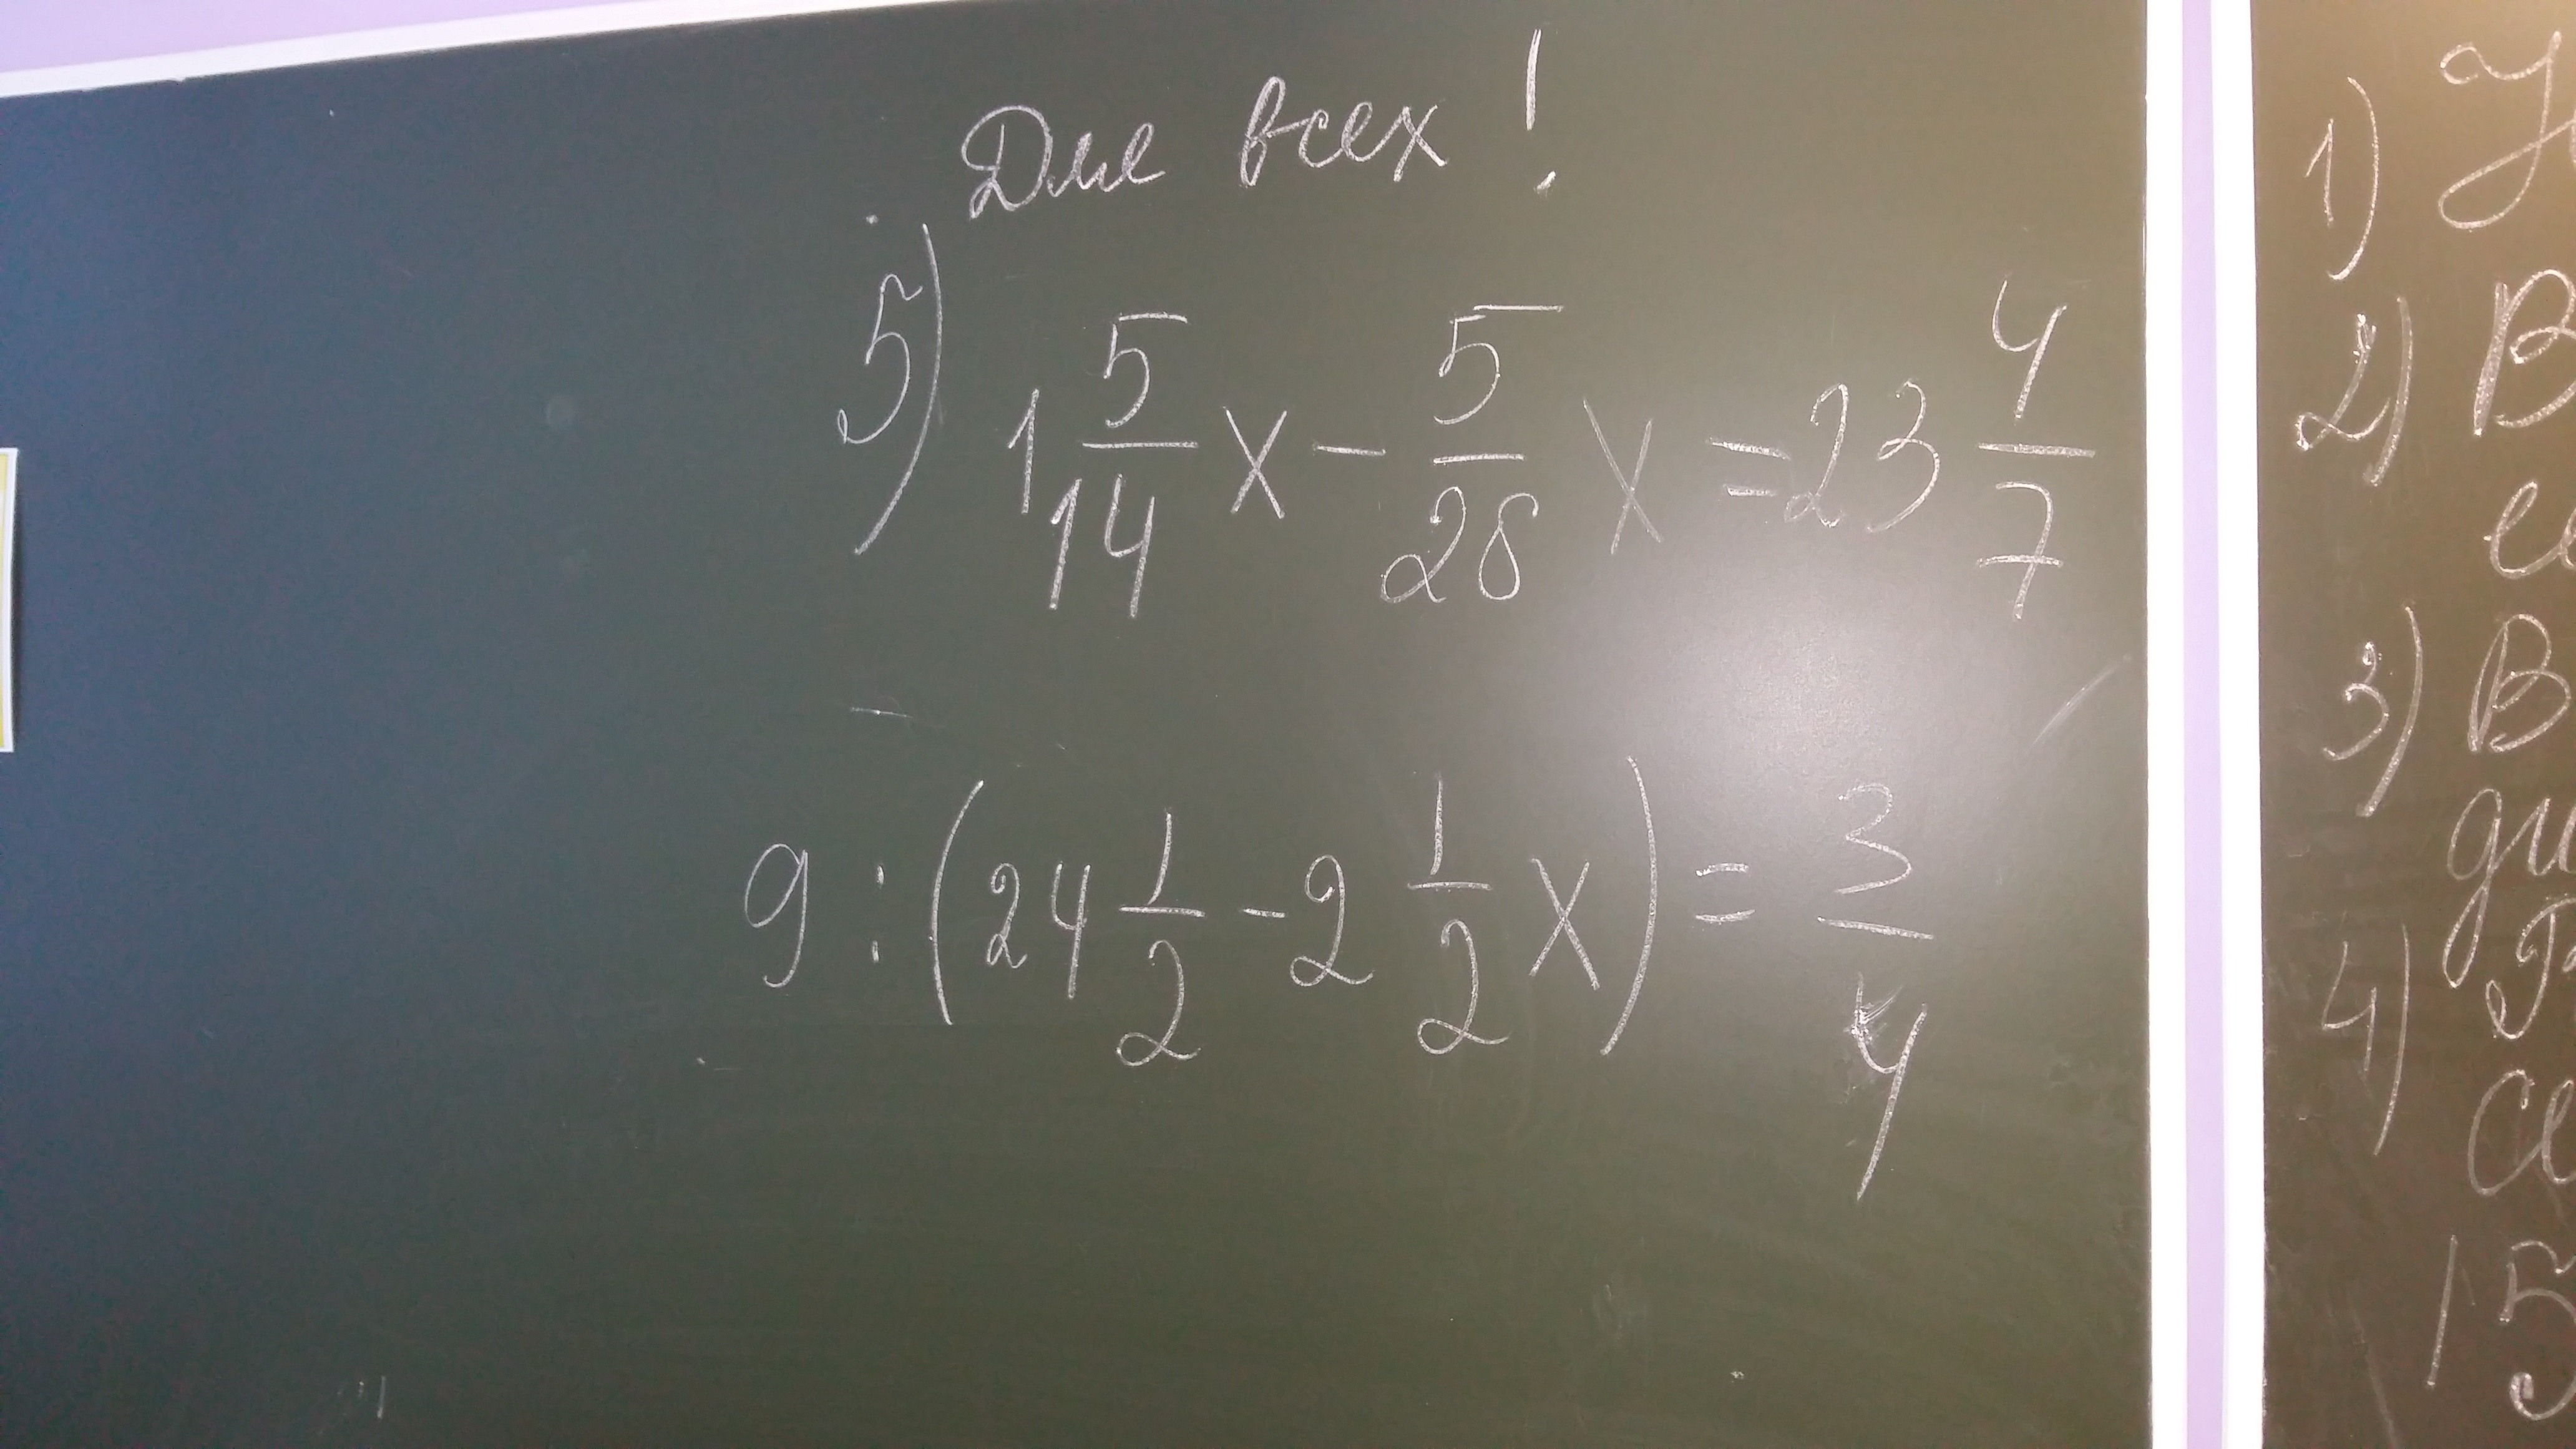 Для всех!
5) 1 5/14 x - 5/28 x = 23 4/7
9 : (24 1/2 - 2 1/2 x) = 3/4
1)
2) В
3) В
4)
15